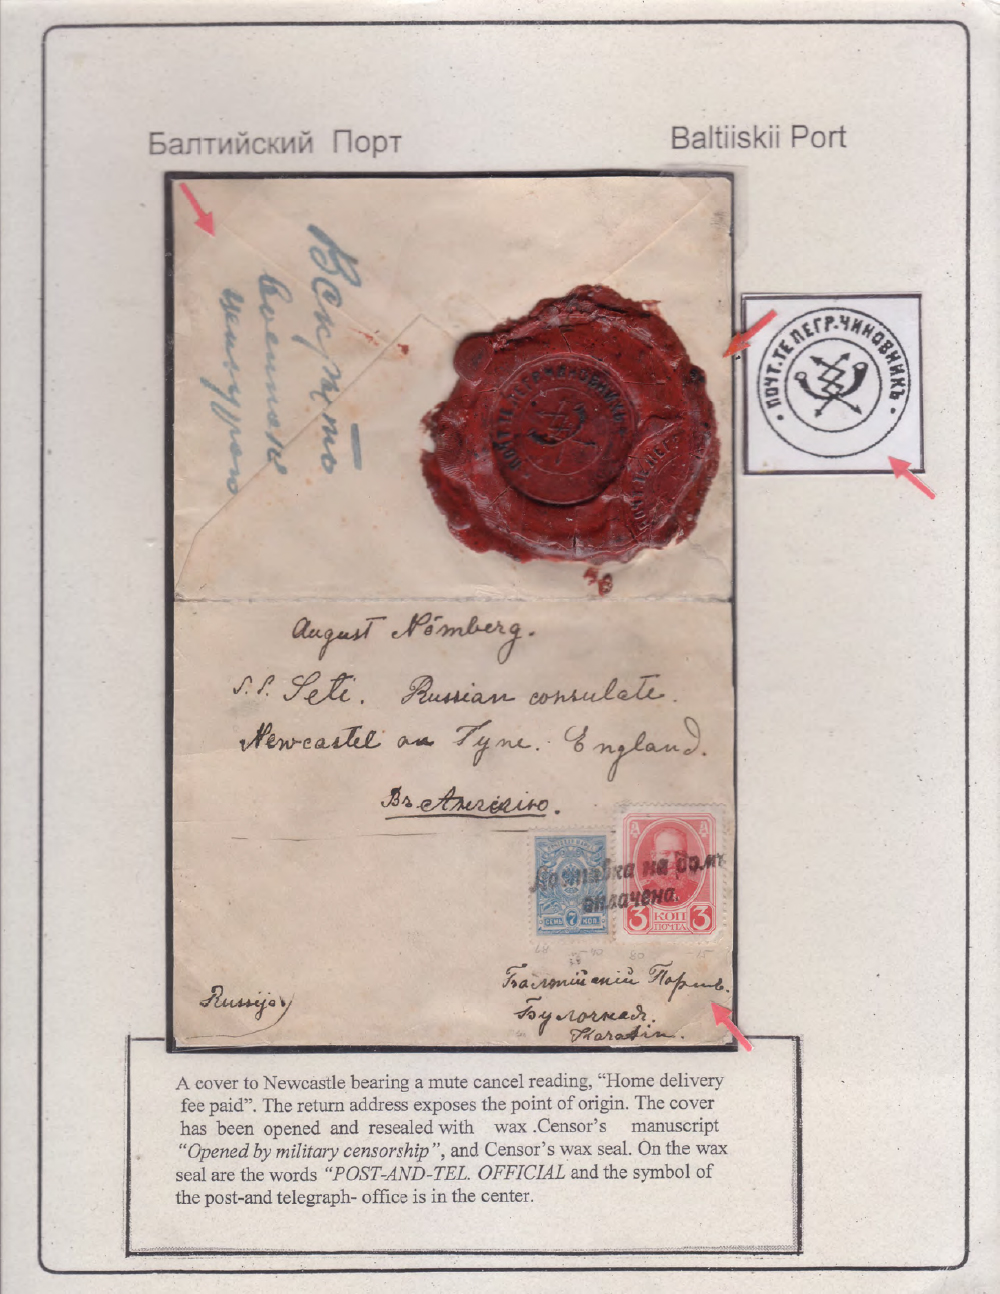 Балтийский Порт
Baltiiskii Port
Вскрыто
военной
цензурой
ПОЧТ.ТЕЛЕГР.ЧИНОВНИКЪ
ПОЧТ.ТЕЛЕГР.
ПОЧТ.ТЕЛЕГР.ЧИНОВНИКЪ
August Nõmberg.
S.S. Seti. Russian consulate.
Newcastel on Tyne. England.
Въ Англію.
Доставка на домъ
оплачена.
7
СЕМЬ КОП.
3 КОП 3
ПОЧТА
Балтійскій Портъ.
Булочная.
Karatin.
Russija
A cover to Newcastle bearing a mute cancel reading, “Home delivery
fee paid”. The return address exposes the point of origin. The cover
has been opened and resealed with wax .Censor’s manuscript
“Opened by military censorship”, and Censor’s wax seal. On the wax
seal are the words “POST-AND-TEL. OFFICIAL and the symbol of
the post-and telegraph- office is in the center.